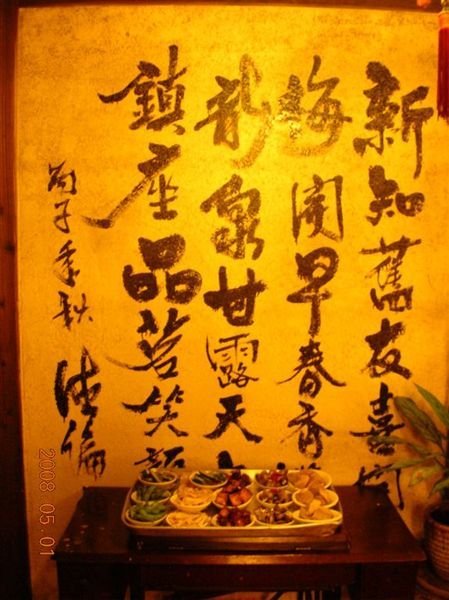 新知舊友喜
梅開早春香
龍泉甘露天
鎮座品茗笑
丙子季秋
2008.05.01